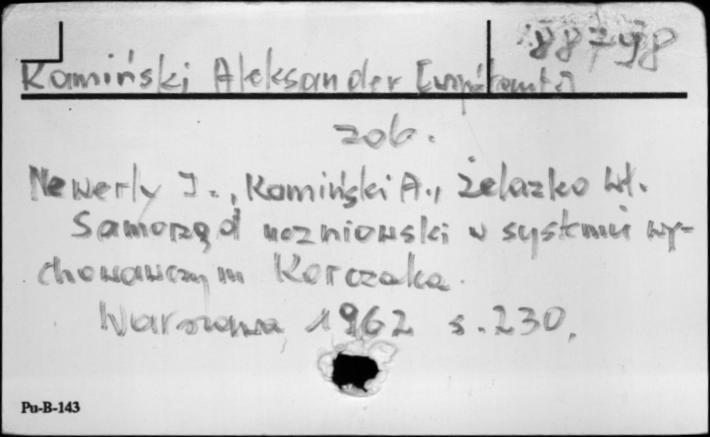 88798
Kamiński Aleksander [współaut.]
zob.
Newerly I., Kamiński A., Żelazko Wł.
Samorząd uczniowski w systemie wy-
chowawczym Korczaka.
Warszawa 1962 s. 230.
Pu-B-143